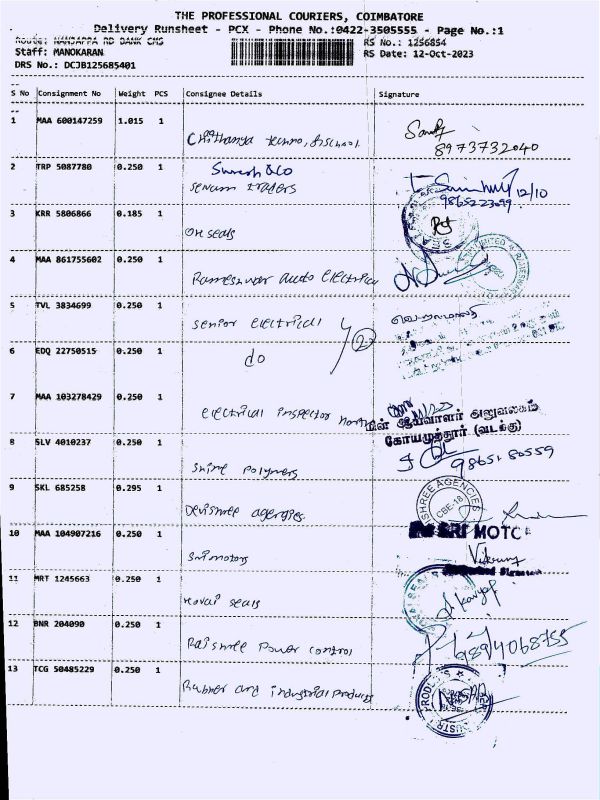 THE PROFESSIONAL COURIERS, COIMBATORE
Delivery Runsheet - PCX - Phone No.:0422-3505555 - Page No.:1
Route: NANJAPPA RD BANK CMS
RS No.: 1256854
Staff: MANOKARAN
RS Date: 12-Oct-2023
DRS No.: DCJB125685401
S No Consignment No Weight PCS Consignee Details Signature
1 MAA 600147259 1.015 1 techno school
8973732040
2 TRP 5087780 0.250 1 Suresh & Co
traders
12/10
3 KRR 5806866 0.185 1 Oil seals
4 MAA 861755602 0.250 1 Rameshwar auto electrical
5 TVL 3834699 0.250 1 senior electrical
6 EDQ 22750515 0.250 1 do
7 MAA 103278429 0.250 1 electrical inspector north
மின் ஆய்வாளர் அலுவலகம்
கோயமுத்தூர் (வடக்கு)
8 SLV 4010237 0.250 1 Shine Polymers
98651 80559
9 SKL 685258 0.295 1 Devishree agencies
SHREE AGENCIES
CBE-18
10 MAA 104907216 0.250 1 Sri motors
SRI MOTO
11 MRT 1245663 0.250 1 Kovai seals
12 BNR 204090 0.250 1 Raishree Power control
9894068755
13 TCG 50485229 0.250 1 Rubber and industrial products